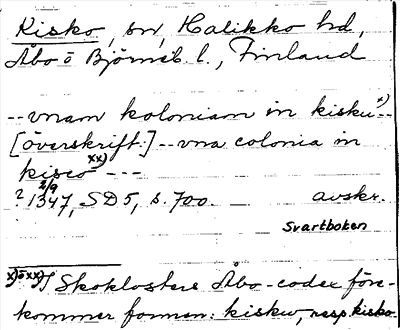 Kisko, sn, Halikko hd,
Åbo o Björneb. l., Finland
-- vnam koloniam in kisku x) --
[överskrift:] -- vna colonia in
kisco xx) ---
? 2/9 1347, SD 5, s. 700. avskr.
Svartboken
x) o xx) I Skoklosters Åbo-codex före-
kommer formen: kisku, resp kisko.